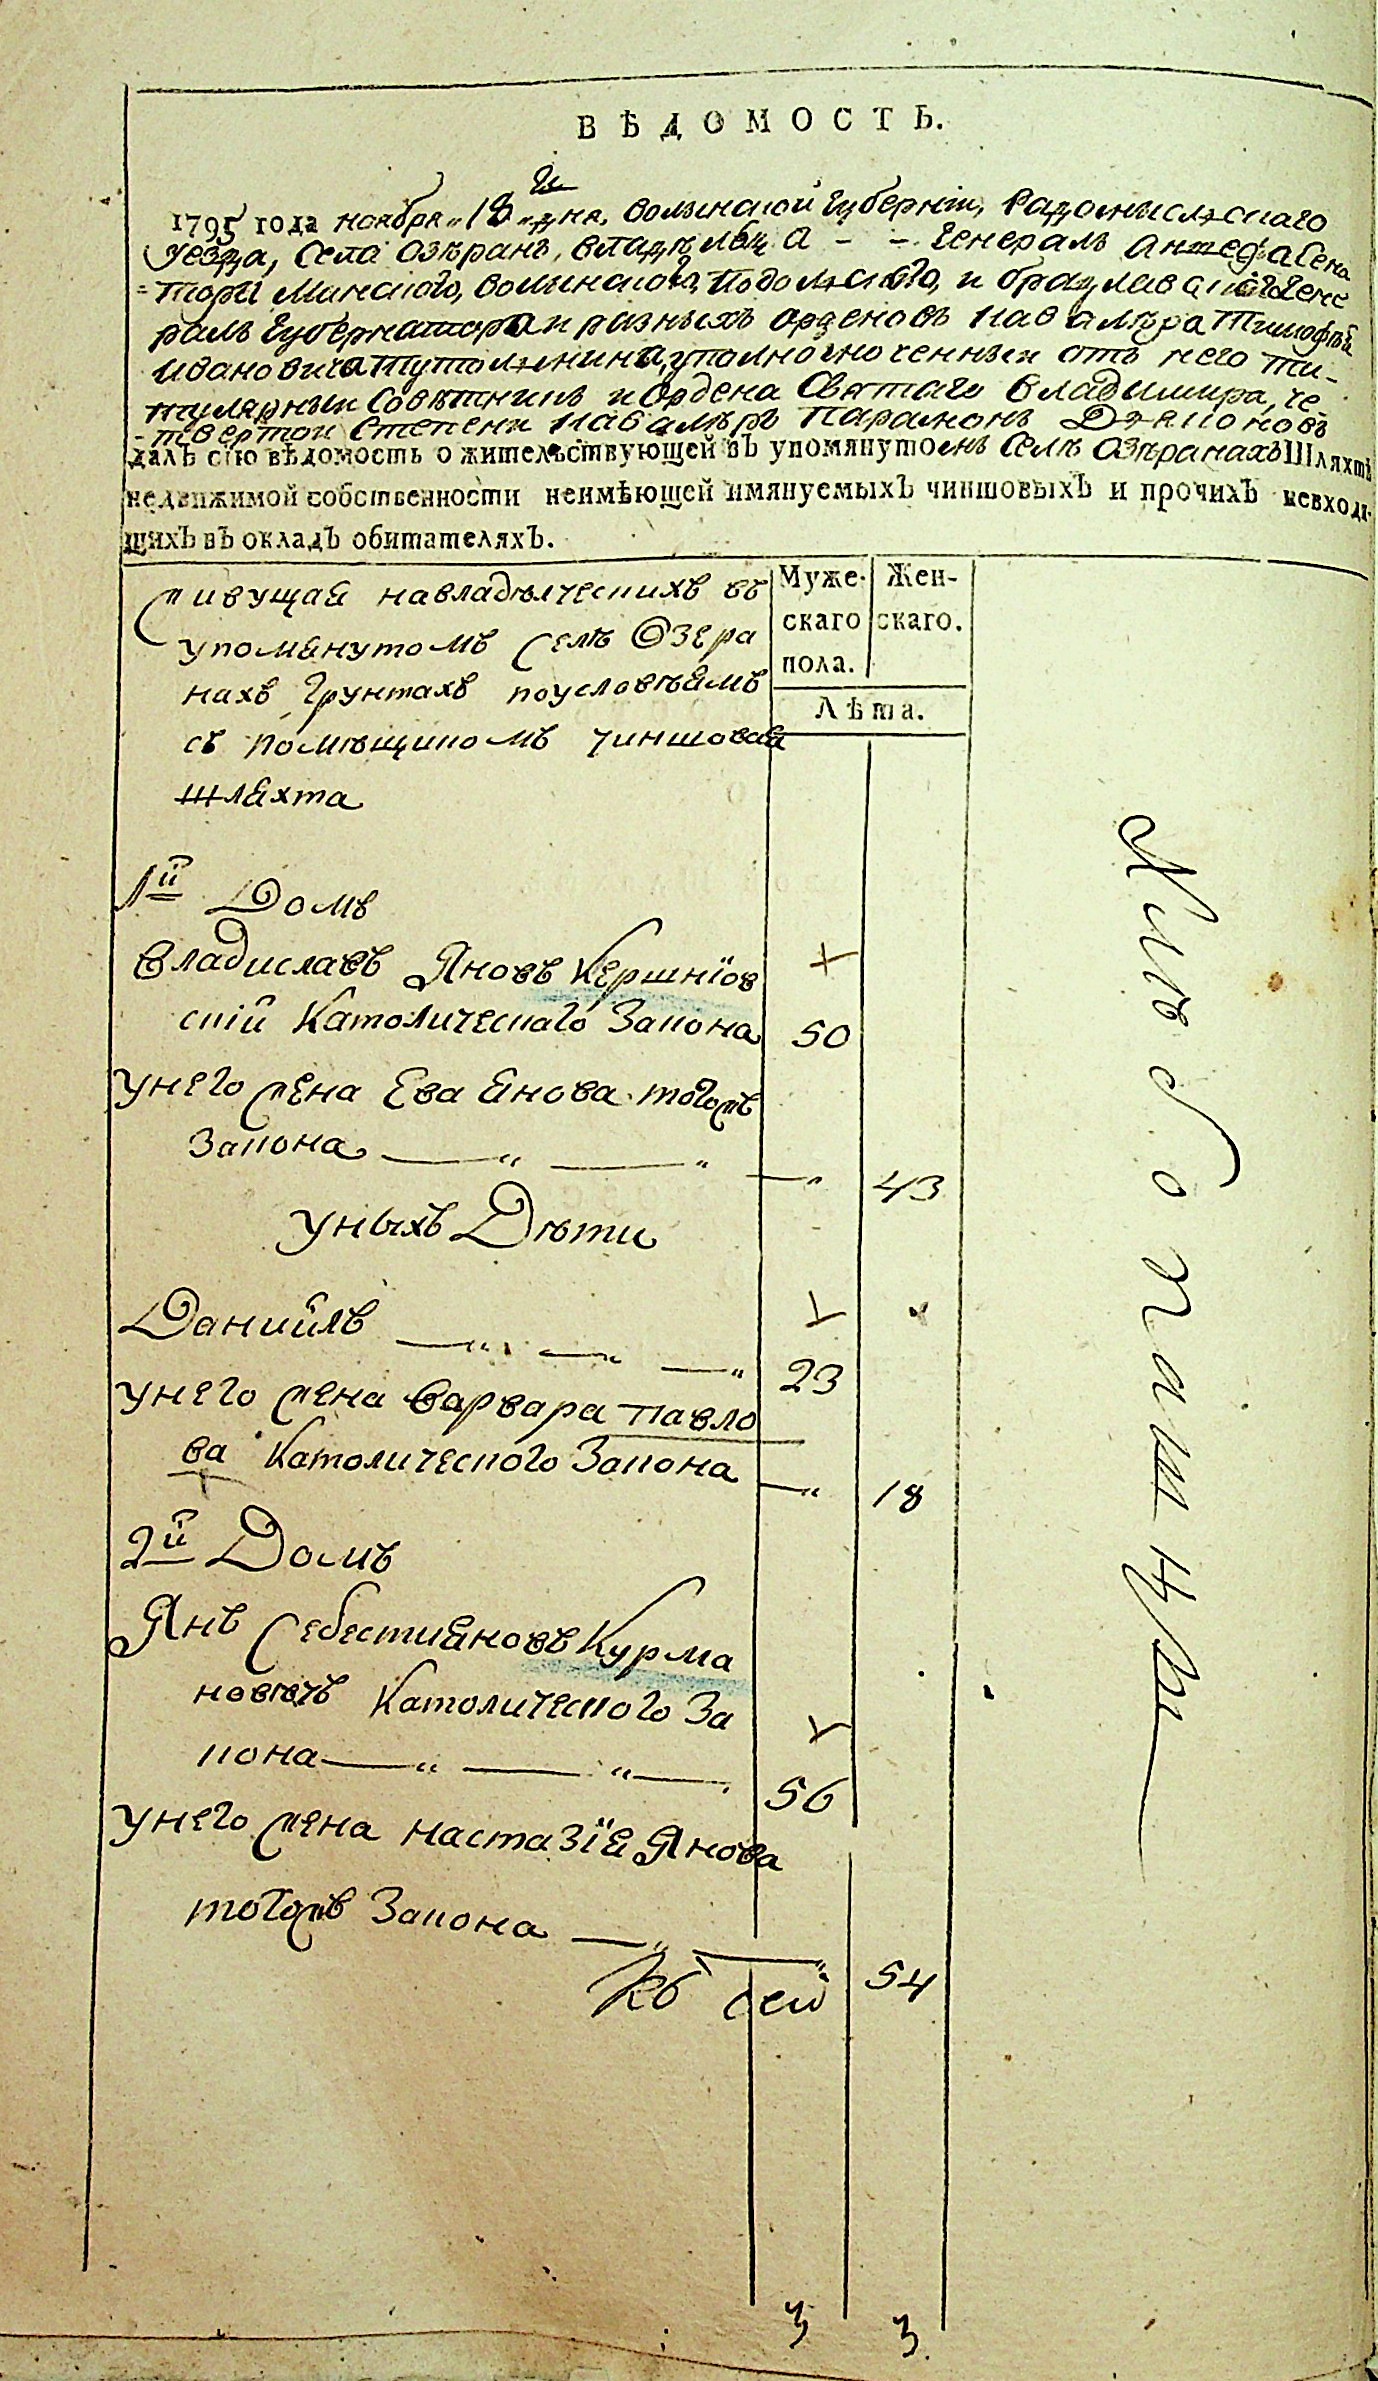 ВѢДОМОСТЬ.
1795 года ноября 18 дня, волынской губерніи, Радомысльскаго
уезда, села озѣранъ, владѣльца - - генералъ аншефа Сена
=тора минскаго, волынскаго, подольскаго, и брацлавскаго гене
ралъ губернатора и разныхъ орденовъ кавалѣра Тимофѣя
ивановича тутолмина, уполномоченныи отъ него ти-
тулярныи совѣтникъ и ордена святаго владимира, че-
-твертои степени кавалѣръ парамонъ
далъ сію вѣдомость о жительствующей въ упомянутомъ селѣ озѣранахъ Шляхтѣ
недвижимой собственности неимѣющей имянуемыхъ чиншовыхъ и прочихъ невходя-
щихъ въ окладъ обитателяхъ.
Муже- Жен-
скаго скаго.
пола.
Лѣта.
живущая навладѣлческихъ въ
упомянутомъ селѣ Озера
нахъ грунтахъ поусловѣямъ
съ помѣщикомъ чиншовая
шляхта
1й Домъ
Владиславъ Яновъ Кершнїов
скій Католическаго Закона 50
унего жена Ева янова тогожъ
Закона 43
уныхъ Дѣти
Даниилъ 23
унего жена варвара павло
ва Католического Закона 18
2й Домъ
Янъ Себестияновъ Курма
новѣчъ Католического За
кона 56
унего жена настазїя Янова
тогожъ Закона 54
Къ сей
3 3